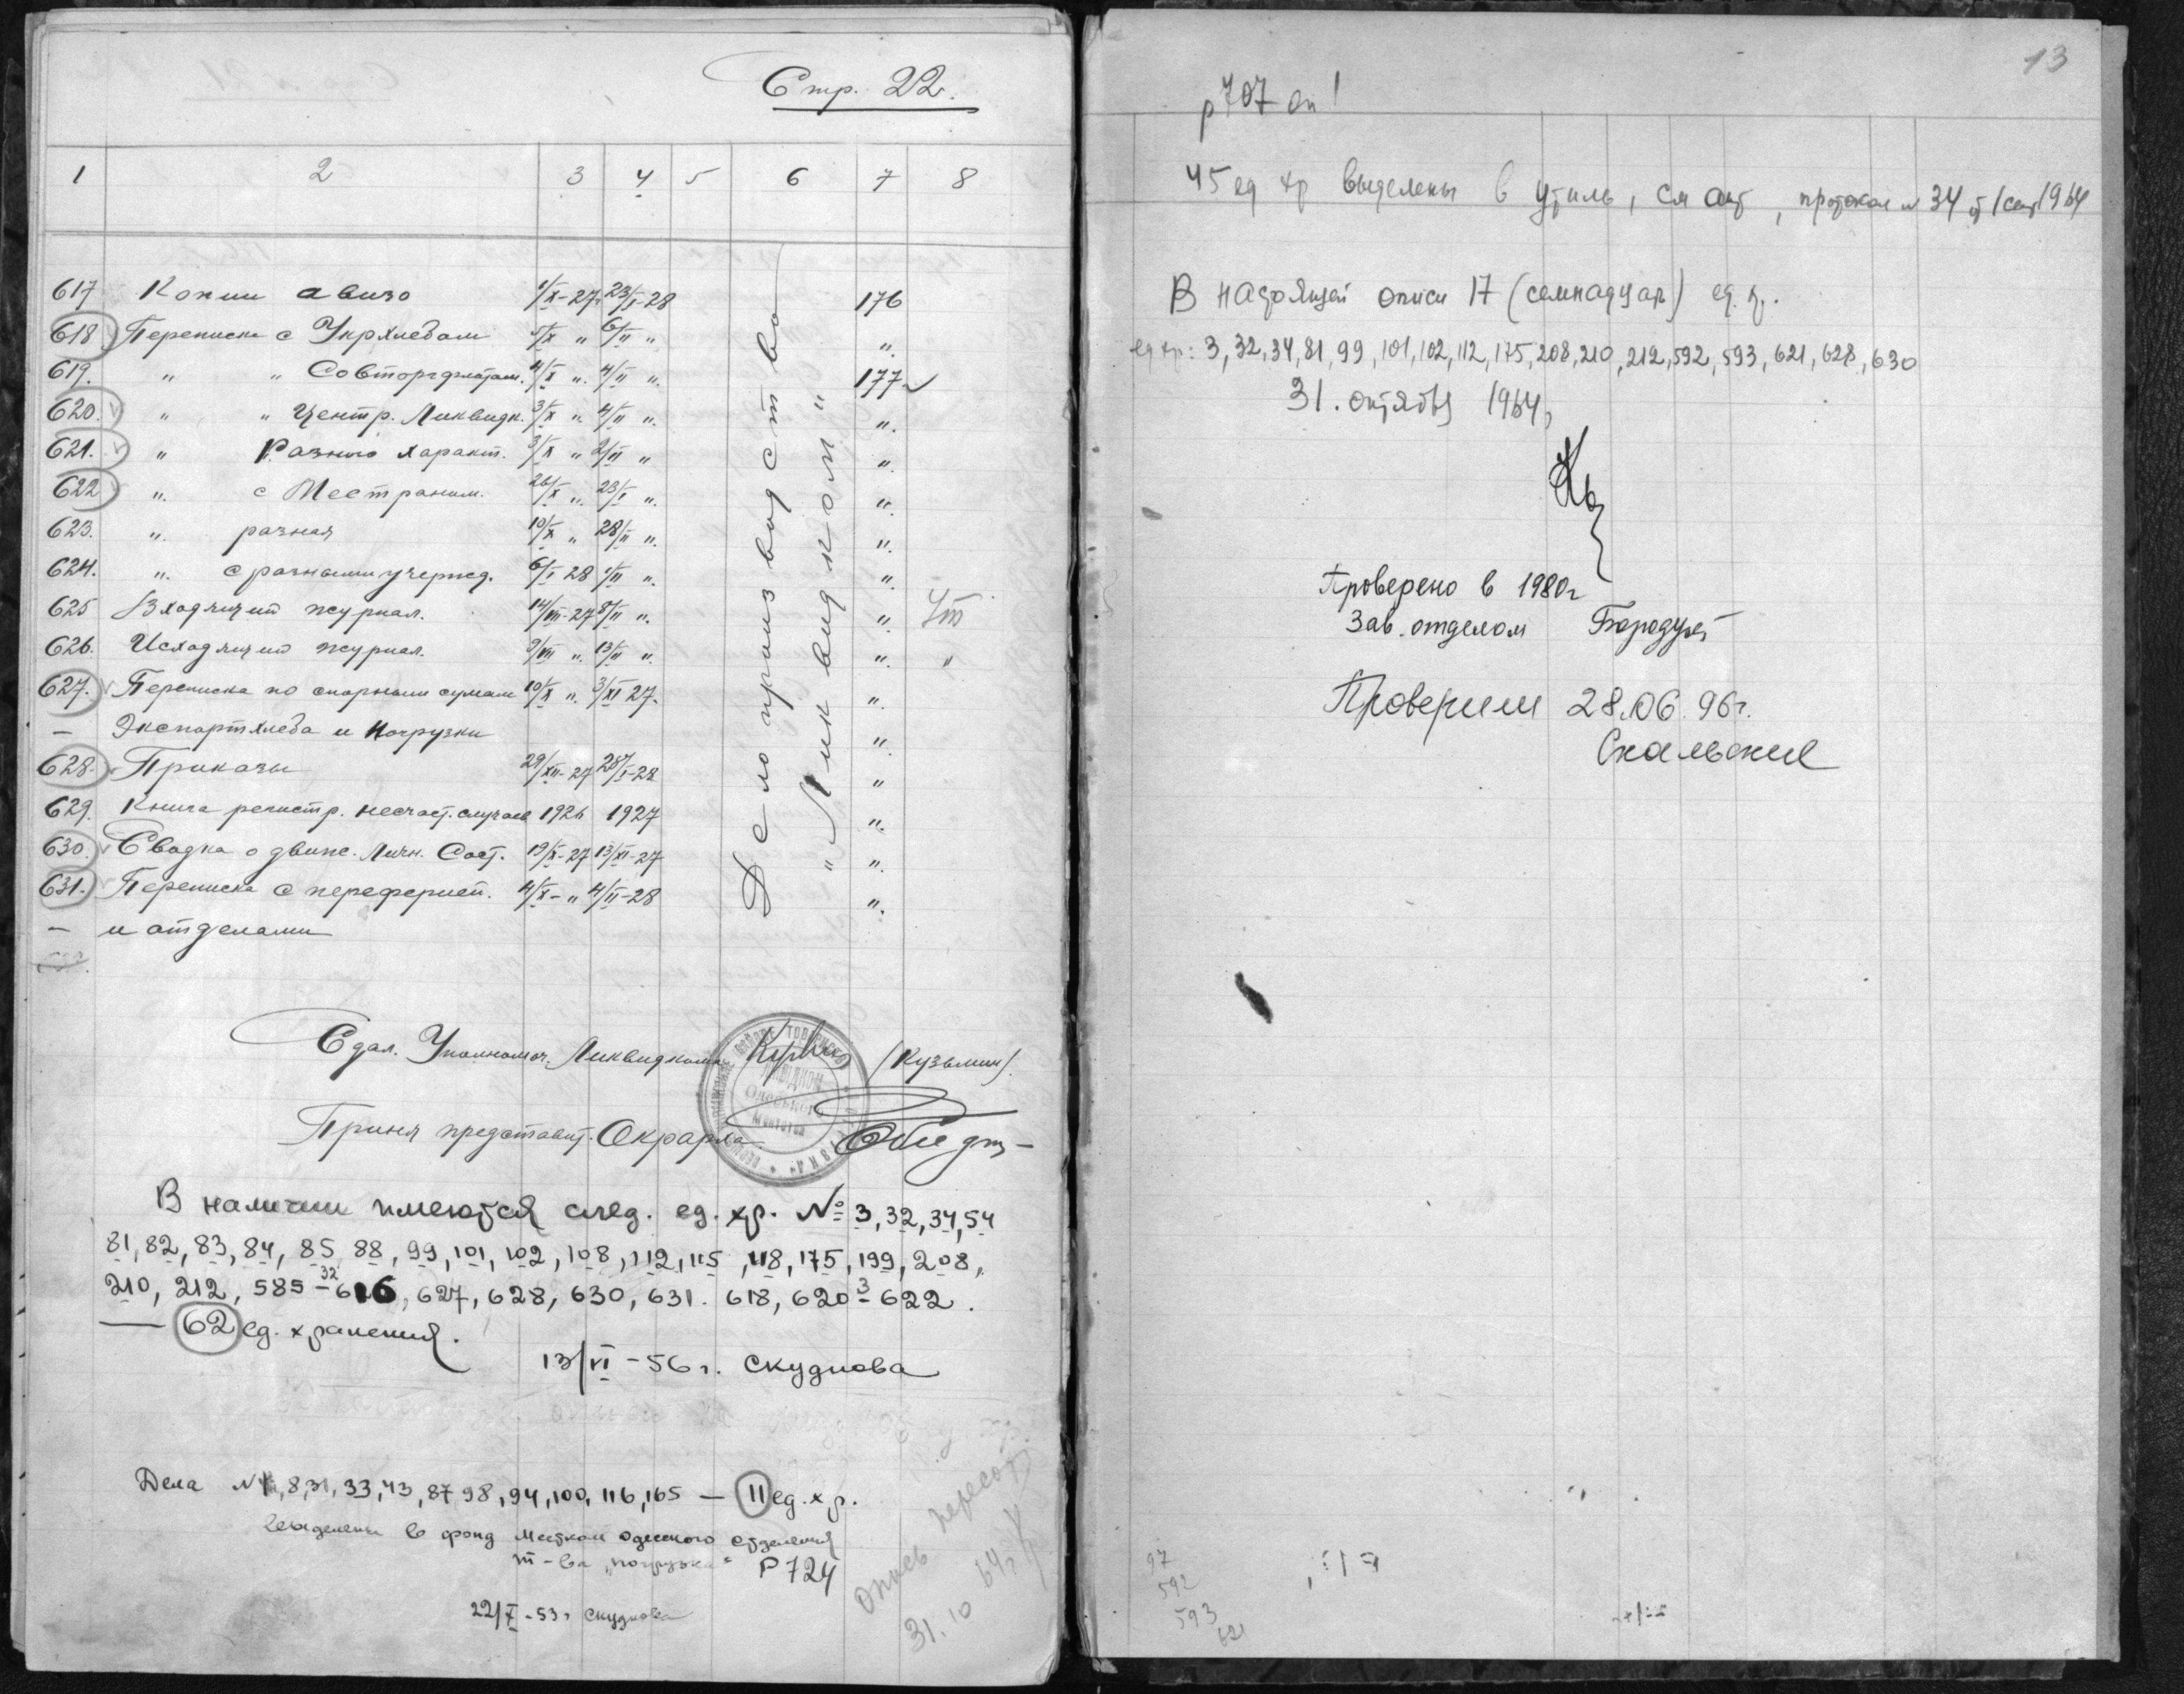 Стр. 22.
1 2 3 4 5 6 7 8
617 Копии авизо 1/X-27. 23/I-28 176
618. Переписка с Укрхлебом 5/X " 6/II " ".
619. " " Совторгфлотом. 4/X ". 4/II ". 177
620. " " Центр. Ликвидк. 3/X ". 4/II ". ".
621. " Разного характ. 3/X " 2/II " ".
622 ". с Местраном. 26/X ". 23/I ". ".
623. ". разная 10/X " 28/II ". ".
624. ". с разными учережд. 6/I 28 1/II ". ".
625 Входящий журнал. 14/VII-27 8/II ". ". Ут
626. Исходящий журнал. 9/VIII ". 13/II ". ". "
627. Переписка по спорным сумам 10/X ". 3/XI 27. ".
— Экспортхлеба и Погрузки ".
628. Приказы 29/XII-27 28/I-28 "
629. Книга регистр. несчаст. случаев 1926 1927 ".
630. Сводка о движе. Личн. Сост. 19/X-27 13/XI-27 ".
631. Переписка с переферией. 4/X-" 4/II-28 ".
— и отделами
Делопроизводство
"Ликвидком"
Сдал. Уполномоч. Ликвидкома (Кузьмин).
Принял представит. Окрарха
В наличии имеются след. ед. хр. № 3, 32, 34, 54
81, 82, 83, 84, 85, 88, 99, 101, 102, 108, 112, 115, 118, 175, 199, 208,
210, 212, 585 -32 616, 627, 628, 630, 631. 618, 620 -3 622.
— 62 ед. хранения.
13/VI-56 г. Скуднова
Дела № 1, 8, 31, 33, 43, 87, 98, 94, 100, 116, 165 — 11 ед. хр.
выделены в фонд Местком одесского отделения
т-ва "погрузка" Р 724
22/X-53 г Скуднова
Опись пересост
31.10 64 г
13
р 707 оп 1
45 ед хр выделены в утиль, см акт, протокол № 34 от 1 сент 1964
В настоящей описи 17 (семнадцать) ед. хр.
ед хр: 3, 32, 34, 81, 99, 101, 102, 112, 175, 208, 210, 212, 592, 593, 621, 628, 630
31. октября 1964 г
Проверено в 1980 г
Зав. отделом
Проверили 28.06.96 г.
Скальские
97
592
593
621